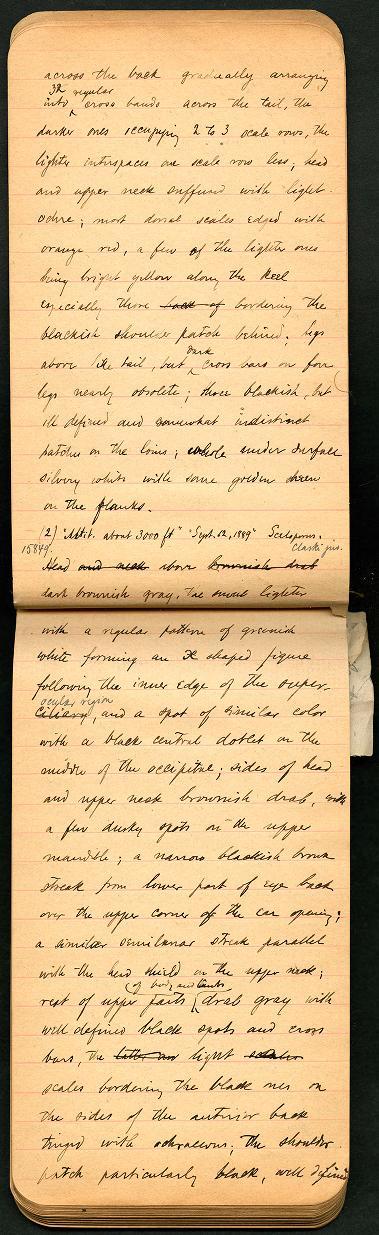 across the back gradually arranging
32 regular
into ^ cross bands across the tail, the
darker ones occupying 2 to 3 scale rows, the
lighter interspaces one scale row less; head
and upper neck suffused with light
ochre; most dorsal scales edged with
orange red, a few of the lighter ones
being bright yellow along the keel
especially those back of bordering the
blackish shoulder patch behind; legs
dark
above like tail, but ^ cross bars on fore
legs nearly obsolete; three blackish, but
ill defined and somewhat indistinct
patches on the loins; whole under surface
silvery white with some golden sheen
on the flanks.
(2) "Altit. about 3000 ft" "Sept. 12, 1889" Sceloporus
15849. Clarkii juv.
Head and neck above brownish drab
dark brownish gray, the snout lighter
with a regular pattern of greenish
white forming an X shaped figure
following the inner edge of the super-
ocular region
ciliary, and a spot of similar color
with a black central dotlet on the
middle of the occipital; sides of head
and upper neck brownish drab, with
a few dusky spots on the upper
mandible; a narrow blackish brown
streak from lower part of eye back
over the upper corner of the ear opening;
a similar semilunar streak parallel
with the head shield on the upper neck;
of body and limbs
rest of upper parts drab gray with
well defined black spots and cross
bars, the light
scales bordering the black ones on
the sides of the anterior back
tinged with ochraceous; the shoulder
patch particularly black, well defined